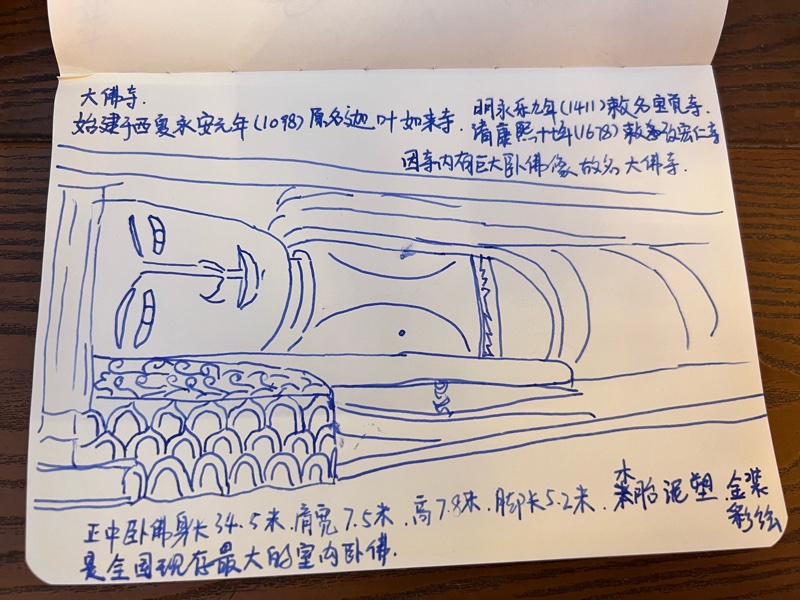 大佛寺.
始建于西夏永安元年(1098)原名迦叶如来寺.
明永乐九年(1411)敕名宝觉寺.
清康熙十七年(1678)敕改宏仁寺
因寺内有巨大卧佛像故名大佛寺.
正中卧佛身长34.5米.肩宽7.5米.高7.8米.脚长5.2米.木胎泥塑.金装
彩绘
是全国现存最大的室内卧佛.